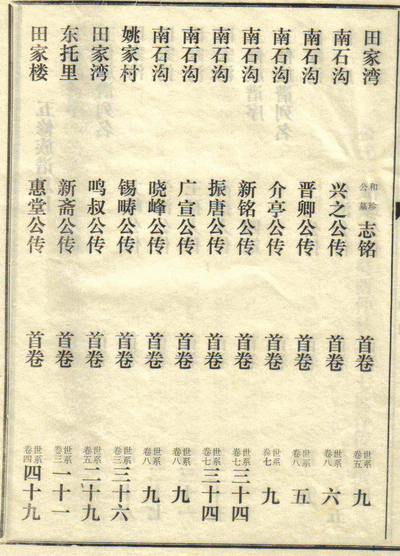 田家湾 和珍公墓志铭 首卷 世系卷五 九
南石沟 兴之公传 首卷 世系卷八 六
南石沟 晋卿公传 首卷 世系卷八 五
南石沟 介亭公传 首卷 世系卷七 九
南石沟 新铭公传 首卷 世系卷七 三十四
南石沟 振唐公传 首卷 世系卷七 三十四
南石沟 广宣公传 首卷 世系卷八 九
南石沟 晓峰公传 首卷 世系卷八 九
姚家村 锡畴公传 首卷 世系卷三 三十六
田家湾 鸣叔公传 首卷 世系卷五 二十九
东托里 新斋公传 首卷 世系卷三 一十一
田家楼 惠堂公传 首卷 世系卷四 四十九